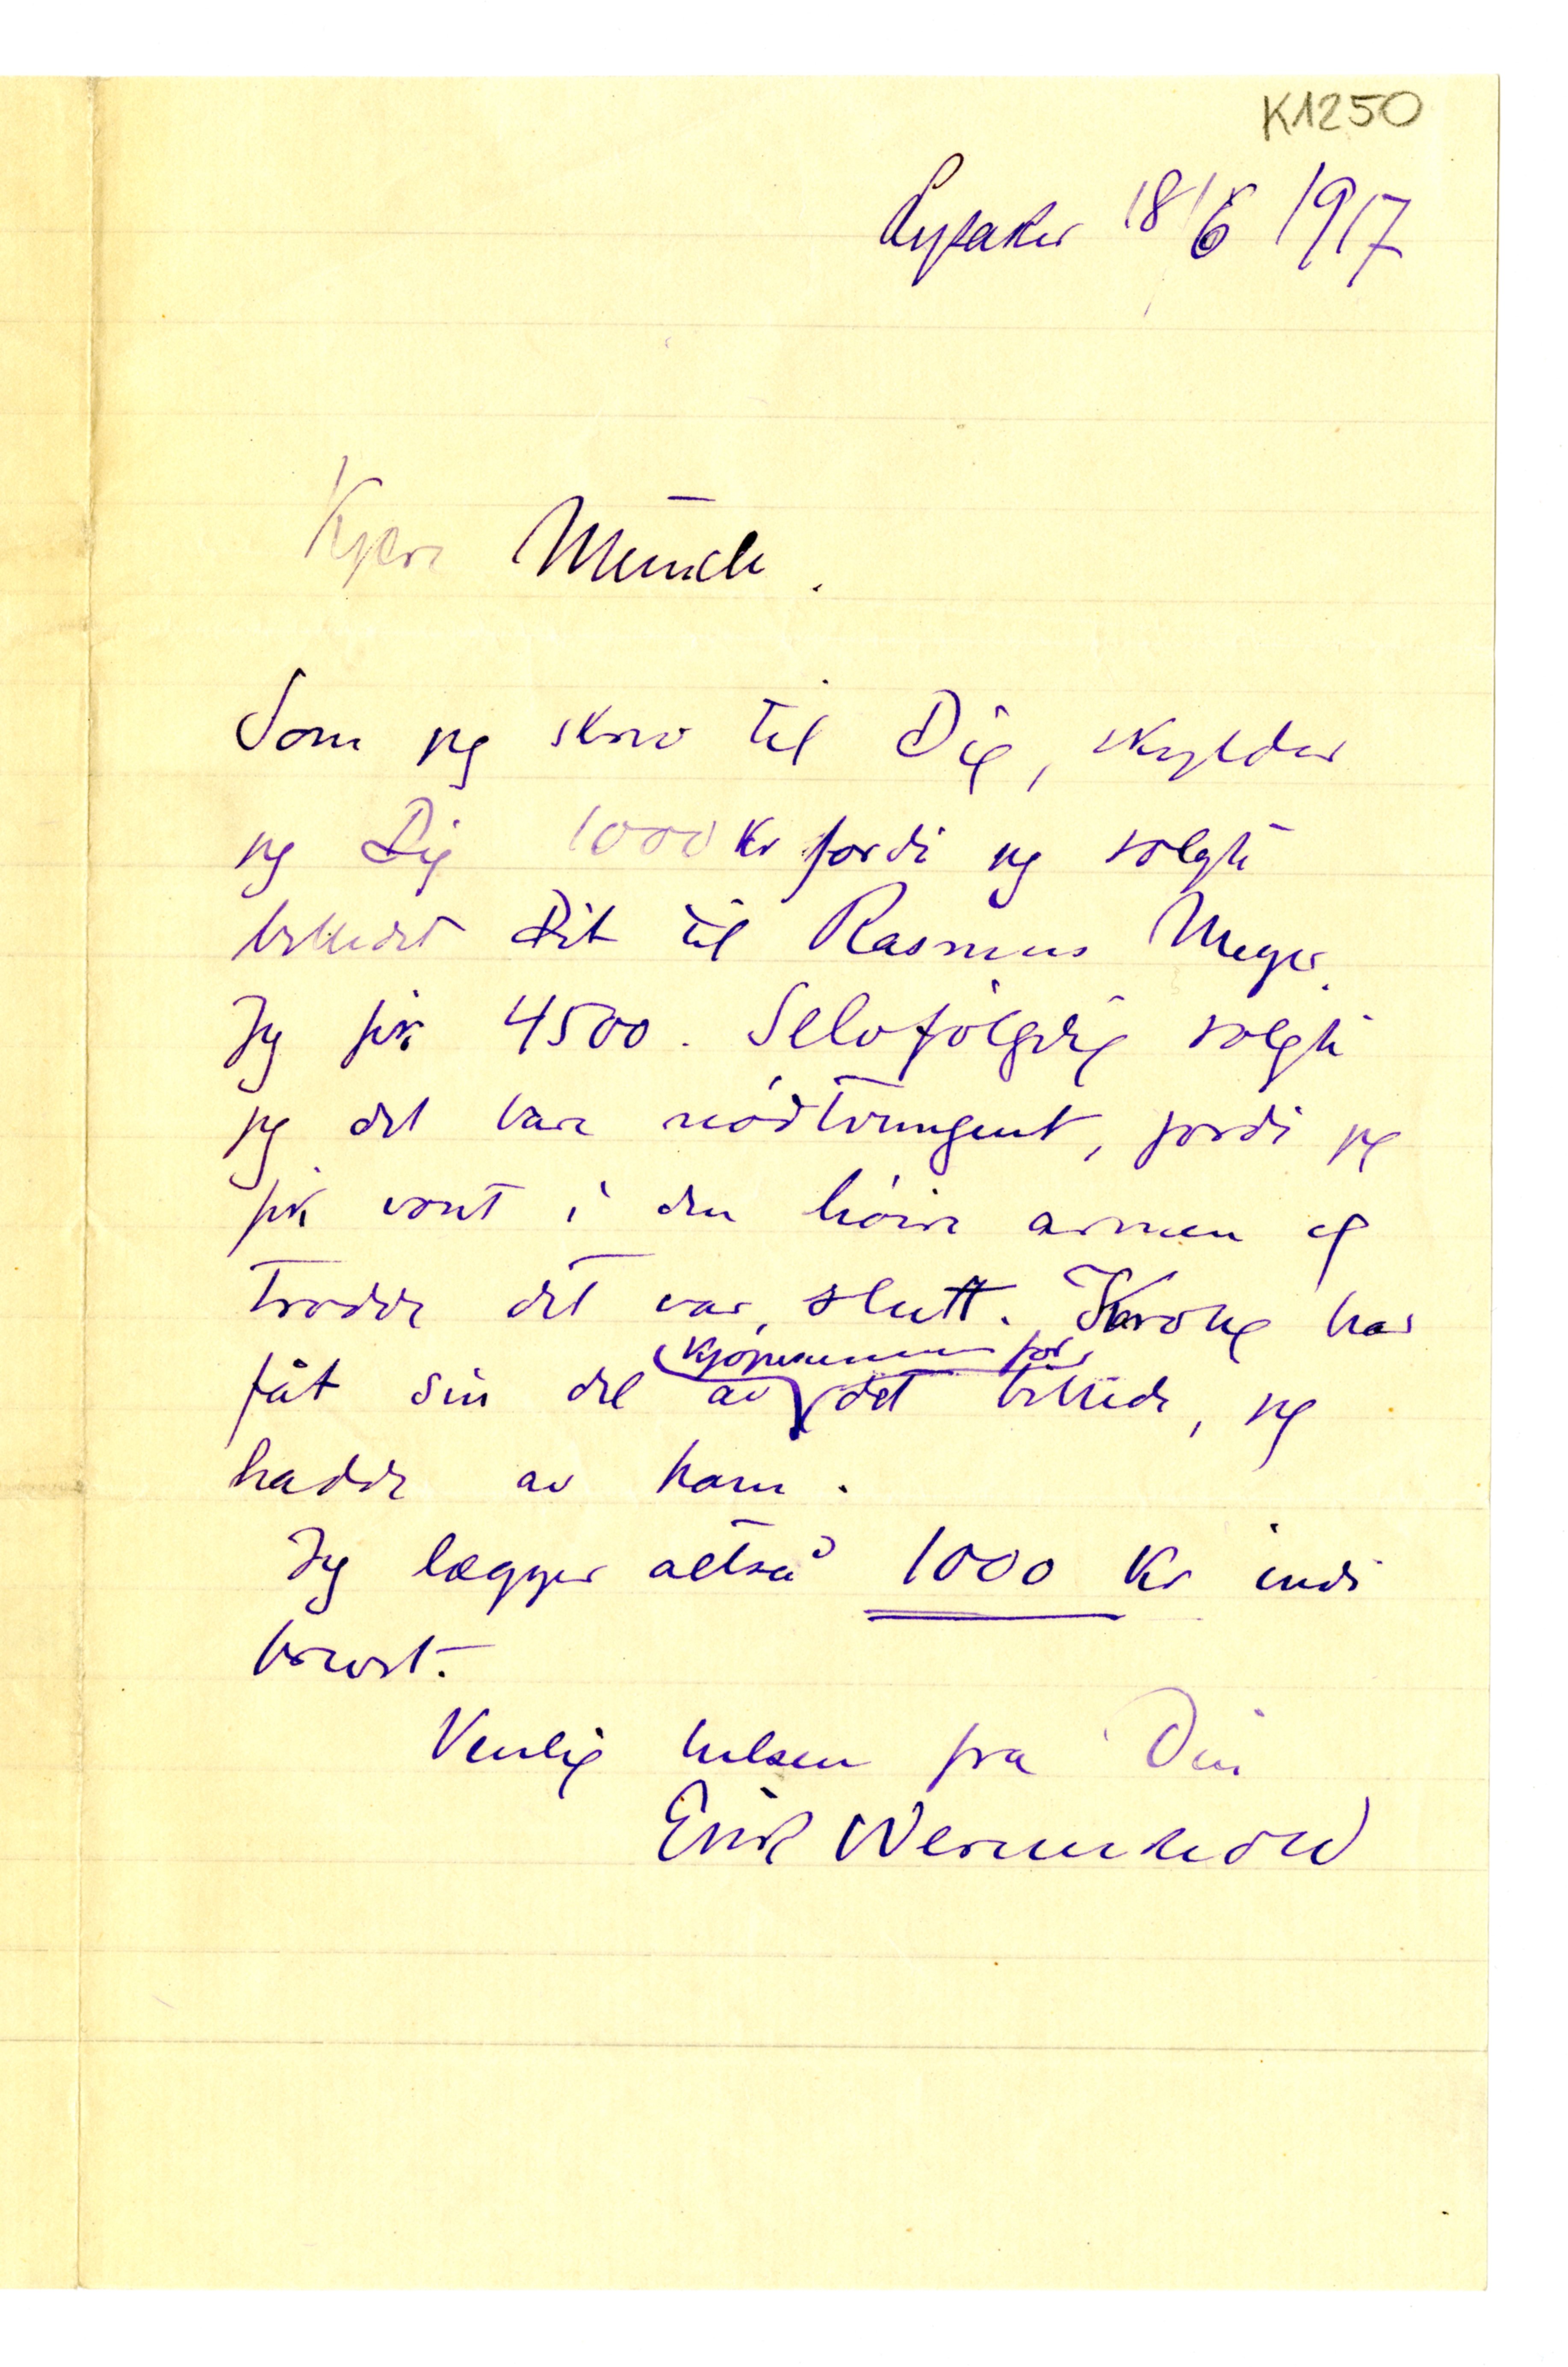 K1250
Lysaker 18/6 1917
Kjære Munch.
Som jeg skrev til Dig, skylder
jeg Dig 1000 kr fordi jeg solgte
billedet Dit til Rasmus Meyer.
Jeg fik 4500. Selvfølgelig solgte
jeg det bare nødtvungent, fordi jeg
fik vont i den høire armen og
trodde det var slutt. Krohg har
kjøpesummen for
fåt sin del av det billede, jeg
hadde av ham.
Jeg lægger altså 1000 kr indi
brevet.
Venlig hilsen fra Din
Erik Werenskiold